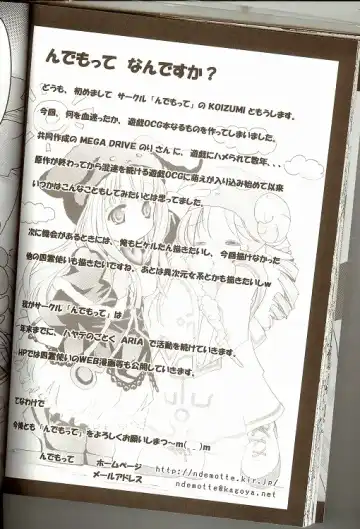 んでもって なんですか？
どうも、初めまして サークル「んでもって」の KOIZUMI ともうします。
今回、何を血迷ったか、遊戯OCG本なるものを作ってしまいました。
共同作成の MEGA DRIVE のりさんに、遊戯にハメられて数年．．．
原作が終わってから混迷を続ける遊戯OCGに萌えが入り込み始めて以来
いつかはこんなこともしてみたいとは思ってました。
次に機会があるときには、俺もピケルたん描きたいし、今回描けなかった
他の四霊使いも描きたいですね、あとは異次元女系とかも描きたいしw
我がサークル「んでもって」は
年末までに、ハヤテのごとく ARIA で活動を続けていきます。
HPでは四霊使いのWEB漫画等も公開していきます。
てなわけで
今後とも「んでもって」をよろしくお願いしまつ～m(_ _)m
んでもって ホームページ http://ndemotte.kir.jp/
メールアドレス ndemotte@kagoya.net